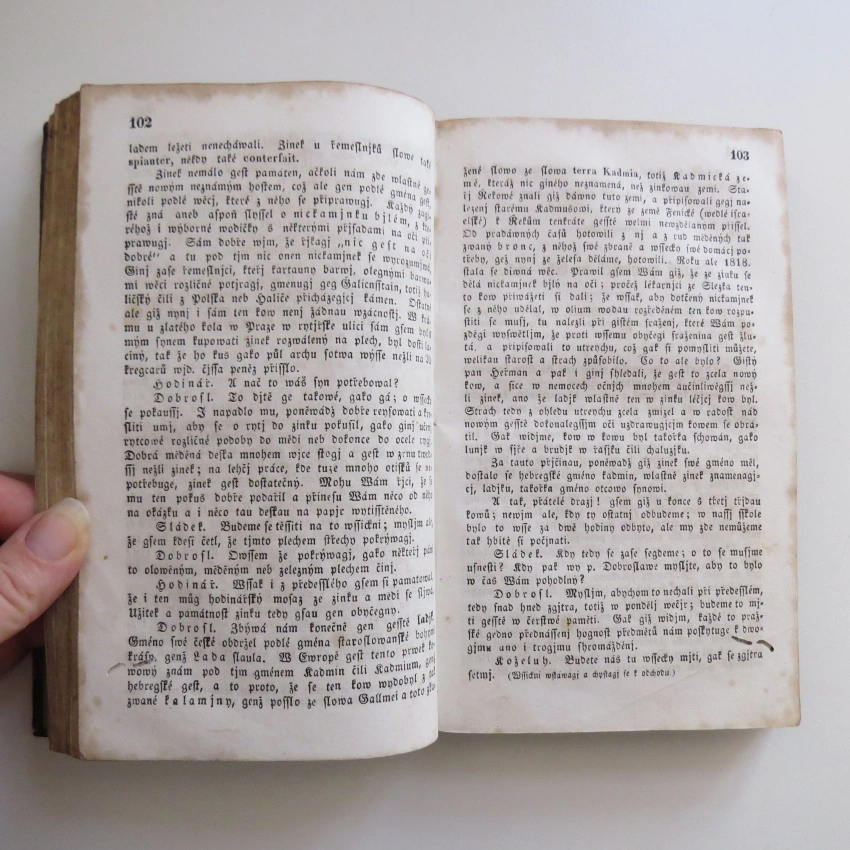 102
ladem ležeti nenecháwali. Zinek u řemeslnjků slowe také
spianter, někdy také conterfait.
Zinek nemálo gest památen, ačkoli nám zde wlastně ge-
sstě nowým neznámým hostem, což ale gen podlé gména gest,
nikoli podlé wěcj, které z něho se připrawugj. Každý zagi-
sté zná aneb aspoň slyssel o nickamjnku bjlém, z kte-
réhož i wýborné wodičky s některými přjsadami na oči při-
prawugj. Sám dobře wjm, že řjkagj „nic gest na oči
dobré“ a tu pod tjm nic onen nickamjnek se wyrozumjwá.
Ginj zase řemeslnjci, kteřj kartauny barwj, olegnými barwa-
mi wěci rozličné potjragj, gmenugj geg Galicnstain, totiž ha-
ličský čili z Polska neb Haliče přicházegjcj kámen. Ostatně
ale giž nynj i sám ten kow nenj žádnau wzácnostj. W krá-
mu u zlatého kola w Praze w rytjřské ulici sám gsem byl s
mým synem kupowati zinek rozwálený na plech, byl dosti la-
ciný, tak že ho kus gako půl archu sotwa wýsse nežli na 30
kregcarů wjd. čjssa peněz přisslo.
Hodinář. A nač to wáš syn potřebowal?
Dobrosl. To djtě ge takowé, gako gá; o wssecko
se pokaussj. I napadlo mu, poněwádž dobře reysowati a kre-
sliti umj, aby se o rytj do zinku pokusil, gako ginj učiní
rytcowé rozličné podoby do mědi neb dokonce do ocele rygj.
Dobrá měděná deska mnohem wjce stogj a gest w zrnu twrd-
ssj nežli zinek; na lehčj práce, kde tuze mnoho otisků se ne-
potřebuge, zinek gest dostatečný. Mohu Wám řjci, že se
mu ten pokus dobře podařil a přinesu Wám něco od něho
na okázku a i něco tau deskau na papjr wytisstěného.
Sládek. Budeme se těssiti na to wssickni; mysljm ale,
že gsem kdesi četl, že tjmto plechem střechy pokrýwagj.
Dobrosl. Owssem že pokrýwagj, gako někteřj páni
to olowěným, měděným neb železným plechem činj.
Hodinář. Wssak i z předesslého gsem si pamatowal,
že i ten můg hodinářský mosaz ze zinku a mědi se sljwá.
Užitek a památnost zinku tedy gsau gen obyčegny.
Dobrosl. Zbýwá nám konečně gen gesstě ladjk.
Gméno swé české obdržel podlé gména staroslowanské bohyně
krásy, genž Lada slaula. W Ewropě gest tento prwek ko-
wowý znám pod tjm gménem Kadmin čili Kadmium, genž
hebregské gest, a to proto, že se ten kow wydobyl z tak
zwané kalamjny, genž posslo ze slowa Gallmei a toto zka-
103
žené slowo ze slowa terra Kadmia, totiž Kadmická ze-
mě, kteráž nic giného neznamená, než zinkowau zemi. Sta-
řj Rekowé znali giž dáwno tuto zemi, a připisowali gegj na-
lezenj starému Kadmusowi, který ze země Fenické (wedlé isra-
elské) k Rekům tenkráte gesstě welmi newzdělaným přissel.
Od pradáwných časů hotowili z nj a z rud měděných tak
zwaný bronc, z něhož swé zbraně a wssecko swé domácj po-
třeby, gež nynj ze železa děláme, hotowili. Roku ale 1818.
stala se diwná wěc. Prawil gsem Wám giž, že ze zinku se
dělá nickamjnek bjlý na oči; pročež lékárnjci ze Slezka ten-
to kow přiwážeti si dali; že wssak, aby dotčený nickamjnek
se z něho udělal, w olium wodau rozředěném ten kow rozpu-
stiti se musj, tu nalezli při gistém sraženj, které Wám po-
zděgi wyswětljm, že proti wssemu obyčegi sraženina gest žlu-
tá, a připisowali to utreychu, což gak si pomysliti můžete,
welikau starost a strach způsobilo. Co to ale bylo? Gistý
pan Heřman a pak i ginj shledali, že gest to zcela nowý
kow, a sice w nemocech očnjch mnohem aučinliwěgssj než-
li zinek, ano že ladjk wlastně ten w zinku léčjcj kow byl.
Strach tedy z ohledu utreychu zcela zmizel a w radost nád
nowým gesstě dokonalegssjm oči uzdrawugjcjm kowem se obrá-
til. Gak widjme, kow w kowu byl takořka schowán, gako
lunjk w sjře a brudjk w řasjku čili chaluzjku.
Za tauto přjčinau, poněwádž giž zinek swé gméno měl,
dostalo se hebregské gméno kadmin, wlastně zinek znamenagj-
cj, ladjku, takořka gméno otcowo synowi.
A tak, přátelé drazj! gsem giž u konce s třetj třjdau
kowů; newjm ale, kdy ty ostatnj odbudeme; w nassj sskole
bylo to wsse za dwě hodiny odbyto, ale my zde nemůžeme
tak hbitě si počjnati.
Sládek. Kdy tedy se zase segdeme; o to se musjme
usnesti? Kdy pak wy p. Dobroslawe myslite, aby to bylo
w čas Wám pohodlný?
Dobrosl. Mysljm, abychom to nechali při předesslém,
tedy snad hned zgjtra, totiž w pondělj wečjr; budeme to mj-
ti gesstě w čerstwé paměti. Gak giž widjm, každé to praž-
ské gedno přednássenj hognost předmětů nám poskytuge k dwo-
gjmu ano i trogjmu shromážděnj.
Koželuh. Budete nás tu wssecky mjti, gak se zgjtra
setmj. (Wssickni wstáwagj a chystagj se k odchodu.)